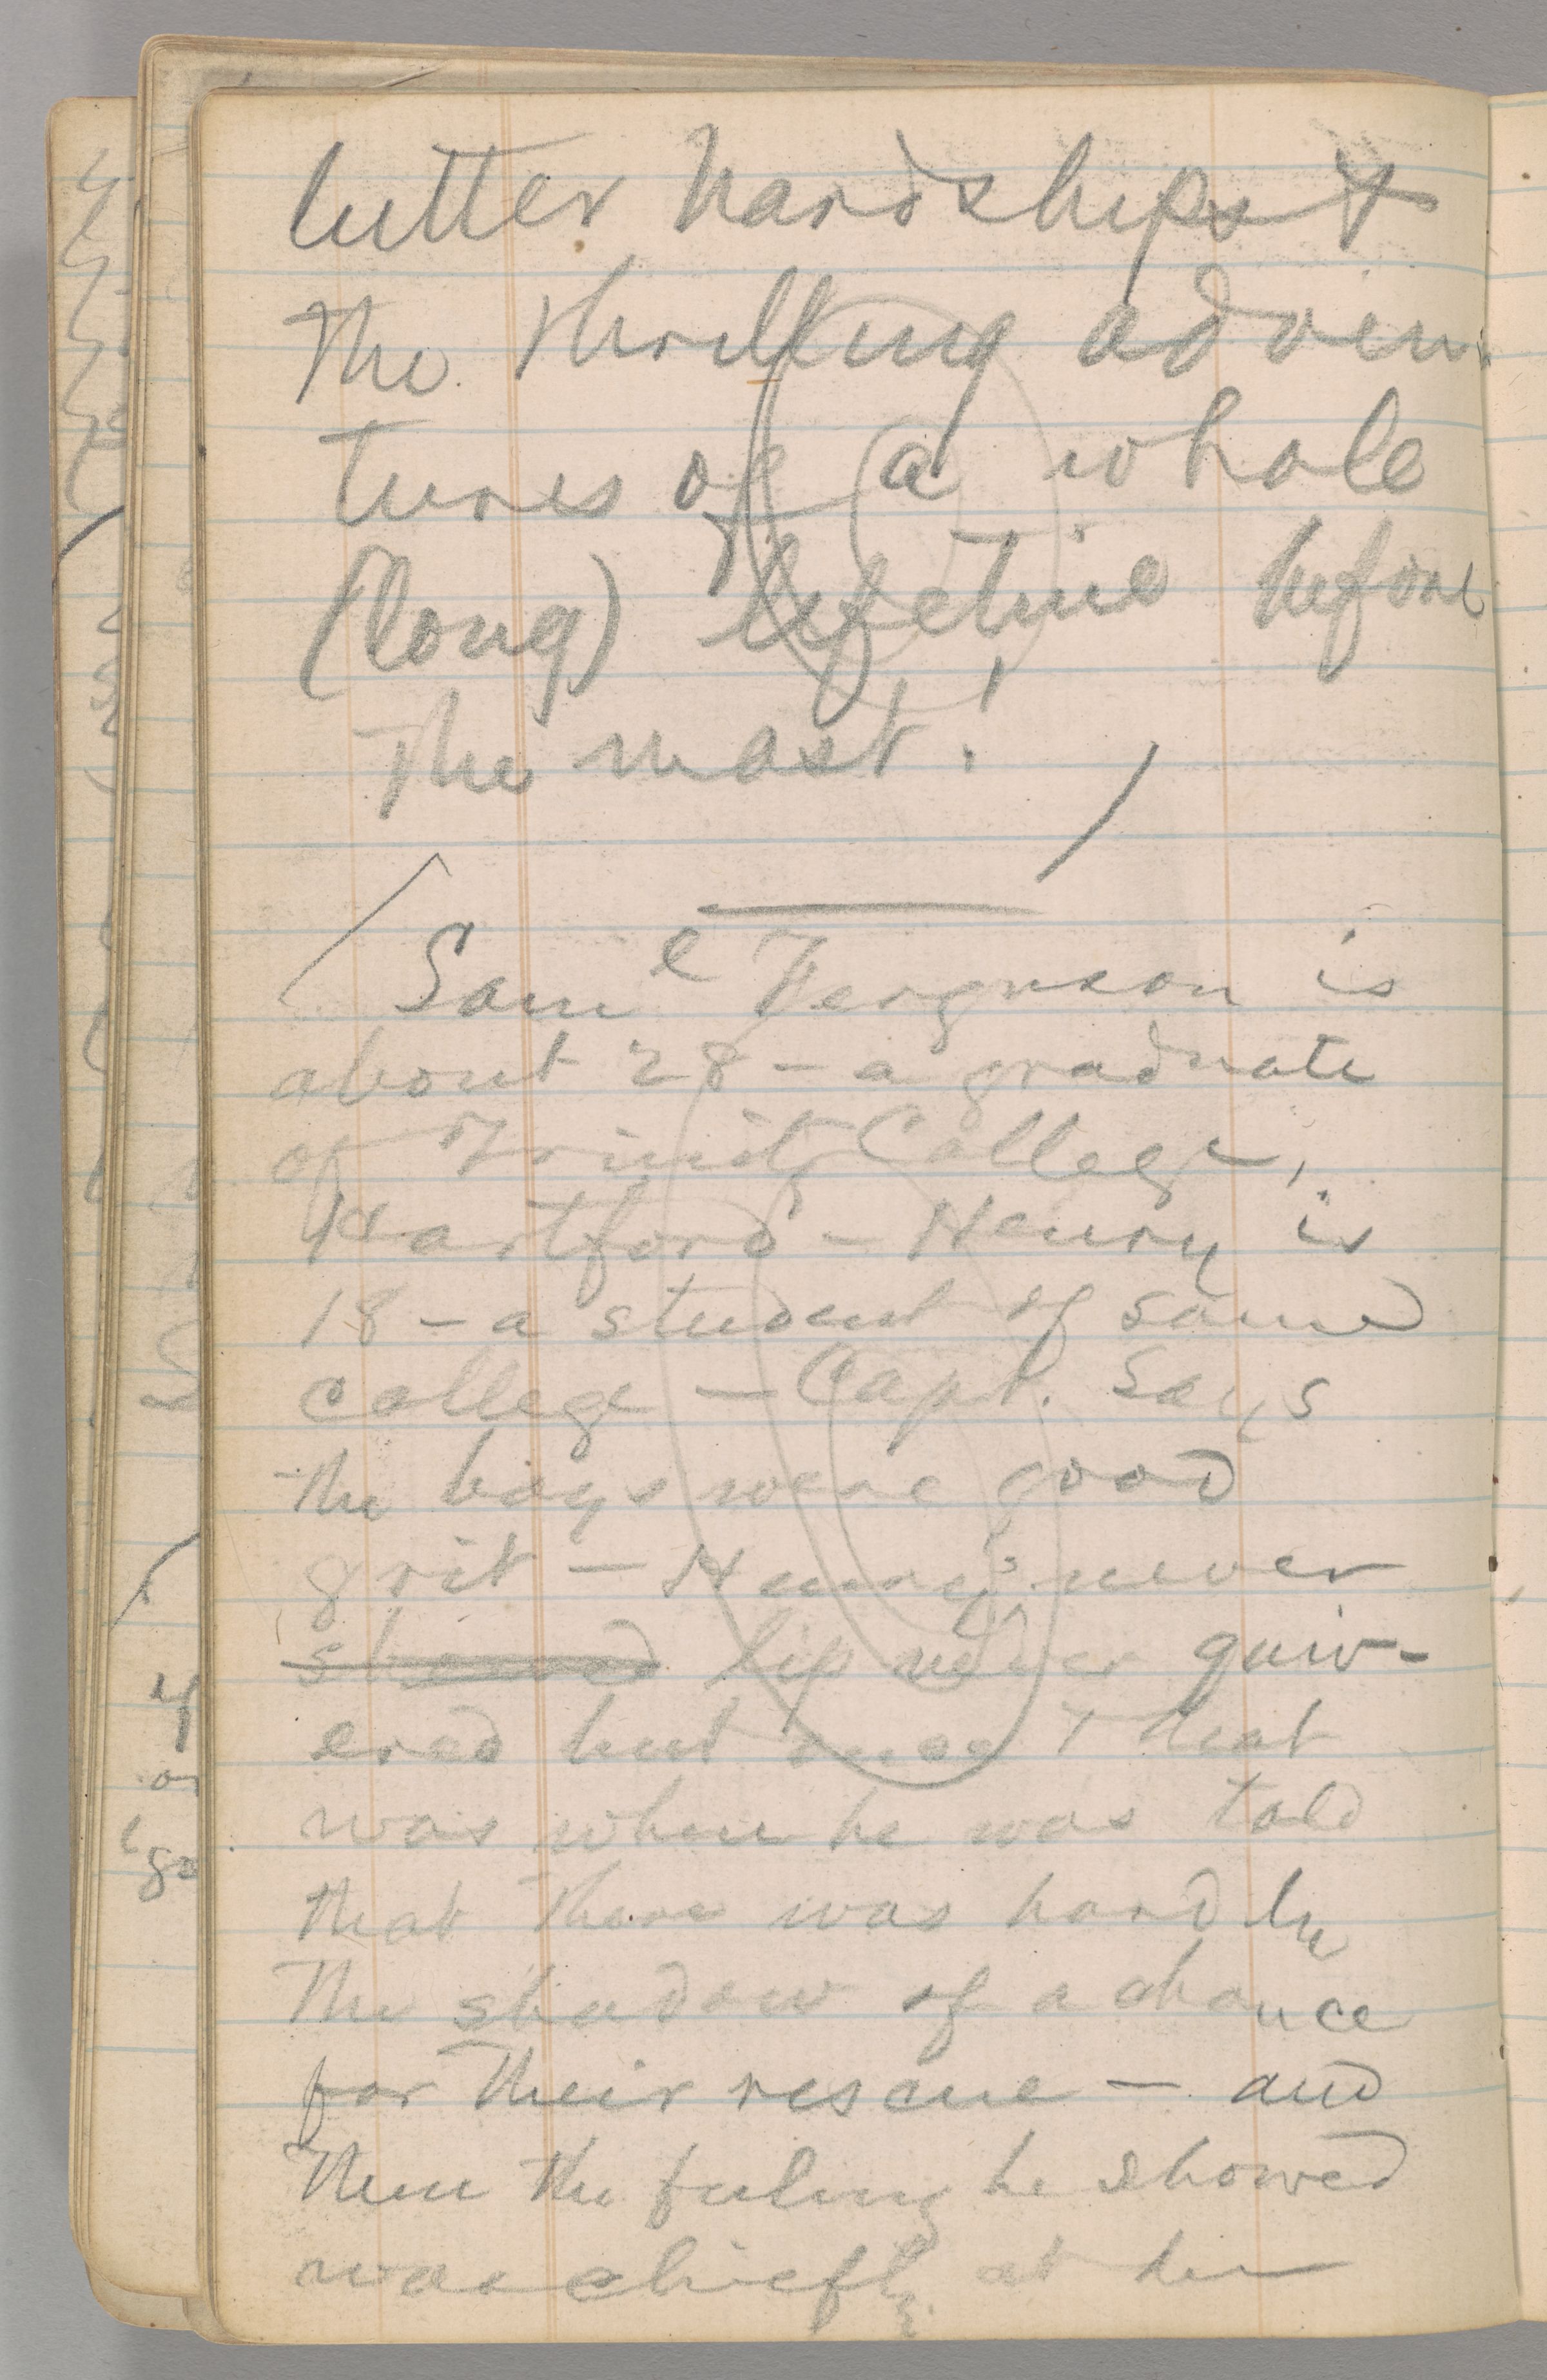 bitter hardships &
the thrilling adven-
tures of a whole
(long) lifetime before
the mast!
Saml Ferguson is
about 28 – a graduate
of Trinity College,
Hartford – Henry is
18 – a student of same
college – Capt. says
the boys were good
grit – Henry's never
showed lip never quiv-
ered but once & that
was when he was told
that there was hardly
the shadow of a chance
for their rescue – and
then the feeling he showed
was chiefly at